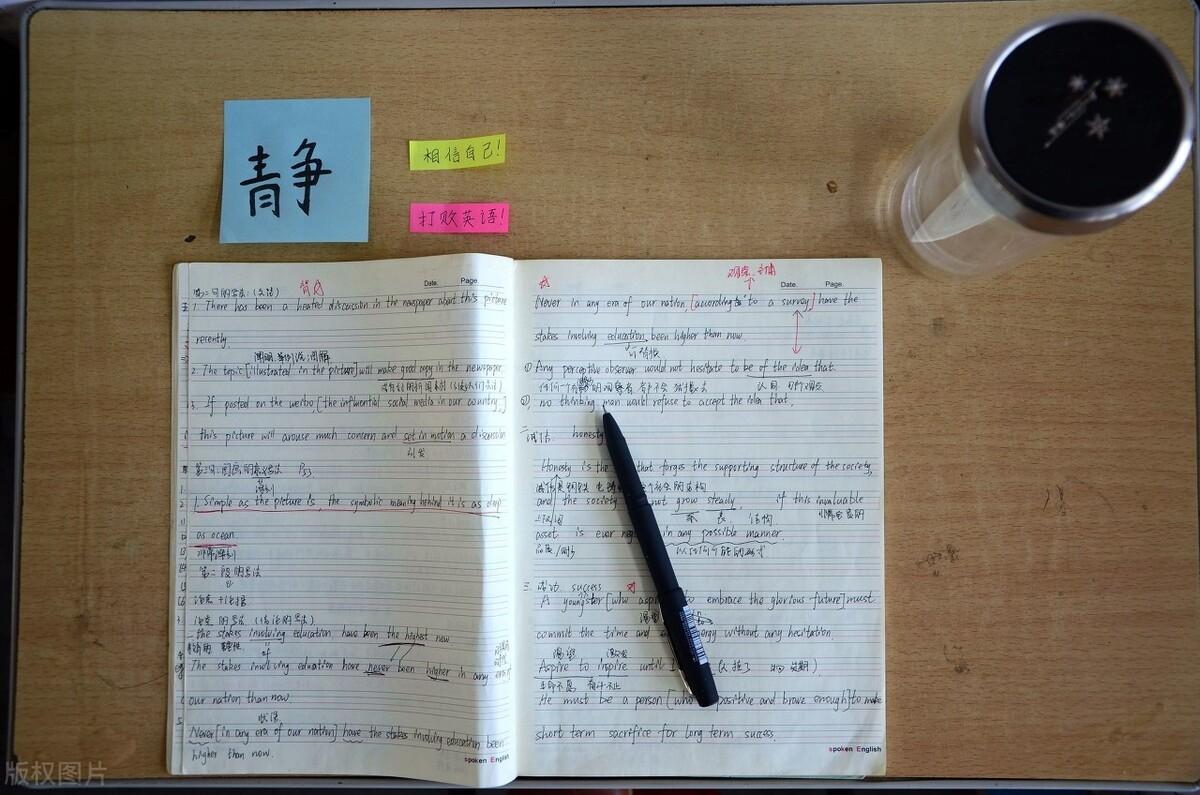 静
相信自己!
打败英语!
Date. Page.
第二句的写法:(火法)
1. There has been a heated discussion in the newspaper about this picture
recently.
2. The topic [illustrated in the picture] will make good copy in the newspaper.
3. If posted on the weibo, [the influential social media in our country,]
this picture will arouse much concern and set in motion a discussion
引发
P53
深刻
1. Simple as the picture is, the symbolic meaning behind it is as deep
as ocean.
非常深刻
第二段的写法
论点+论据
论点的写法
the stakes involving education have been the highest now
of
The stakes involving education have never been higher in any era of
our nation than now.
状语
Never [in any era of our nation] have the stakes involving education been
higher than now.
spoken English
Date. Page.
Never in any era of our nation, [according to a survey,] have the
stakes involving education been higher than now.
① Any perceptive observer would not hesitate to be of the idea that.
任何一个 明观察者 都不会
② no thinking man would refuse to accept the idea that.
二 诚信 honesty
Honesty is the that forges the supporting structure of the society,
and the society not grow steady, if this invaluable
非常宝贵的
asset is ever in any possible manner.
以任何可能的方式
三 成功 success
A youngster [who embrace the glorious future] must
渴望
commit the time and without any hesitation.
渴望
Aspire to inspire until
生命不息
He must be a person [who positive and brave enough] to make
short term sacrifice for long term success.
spoken English
版权图片